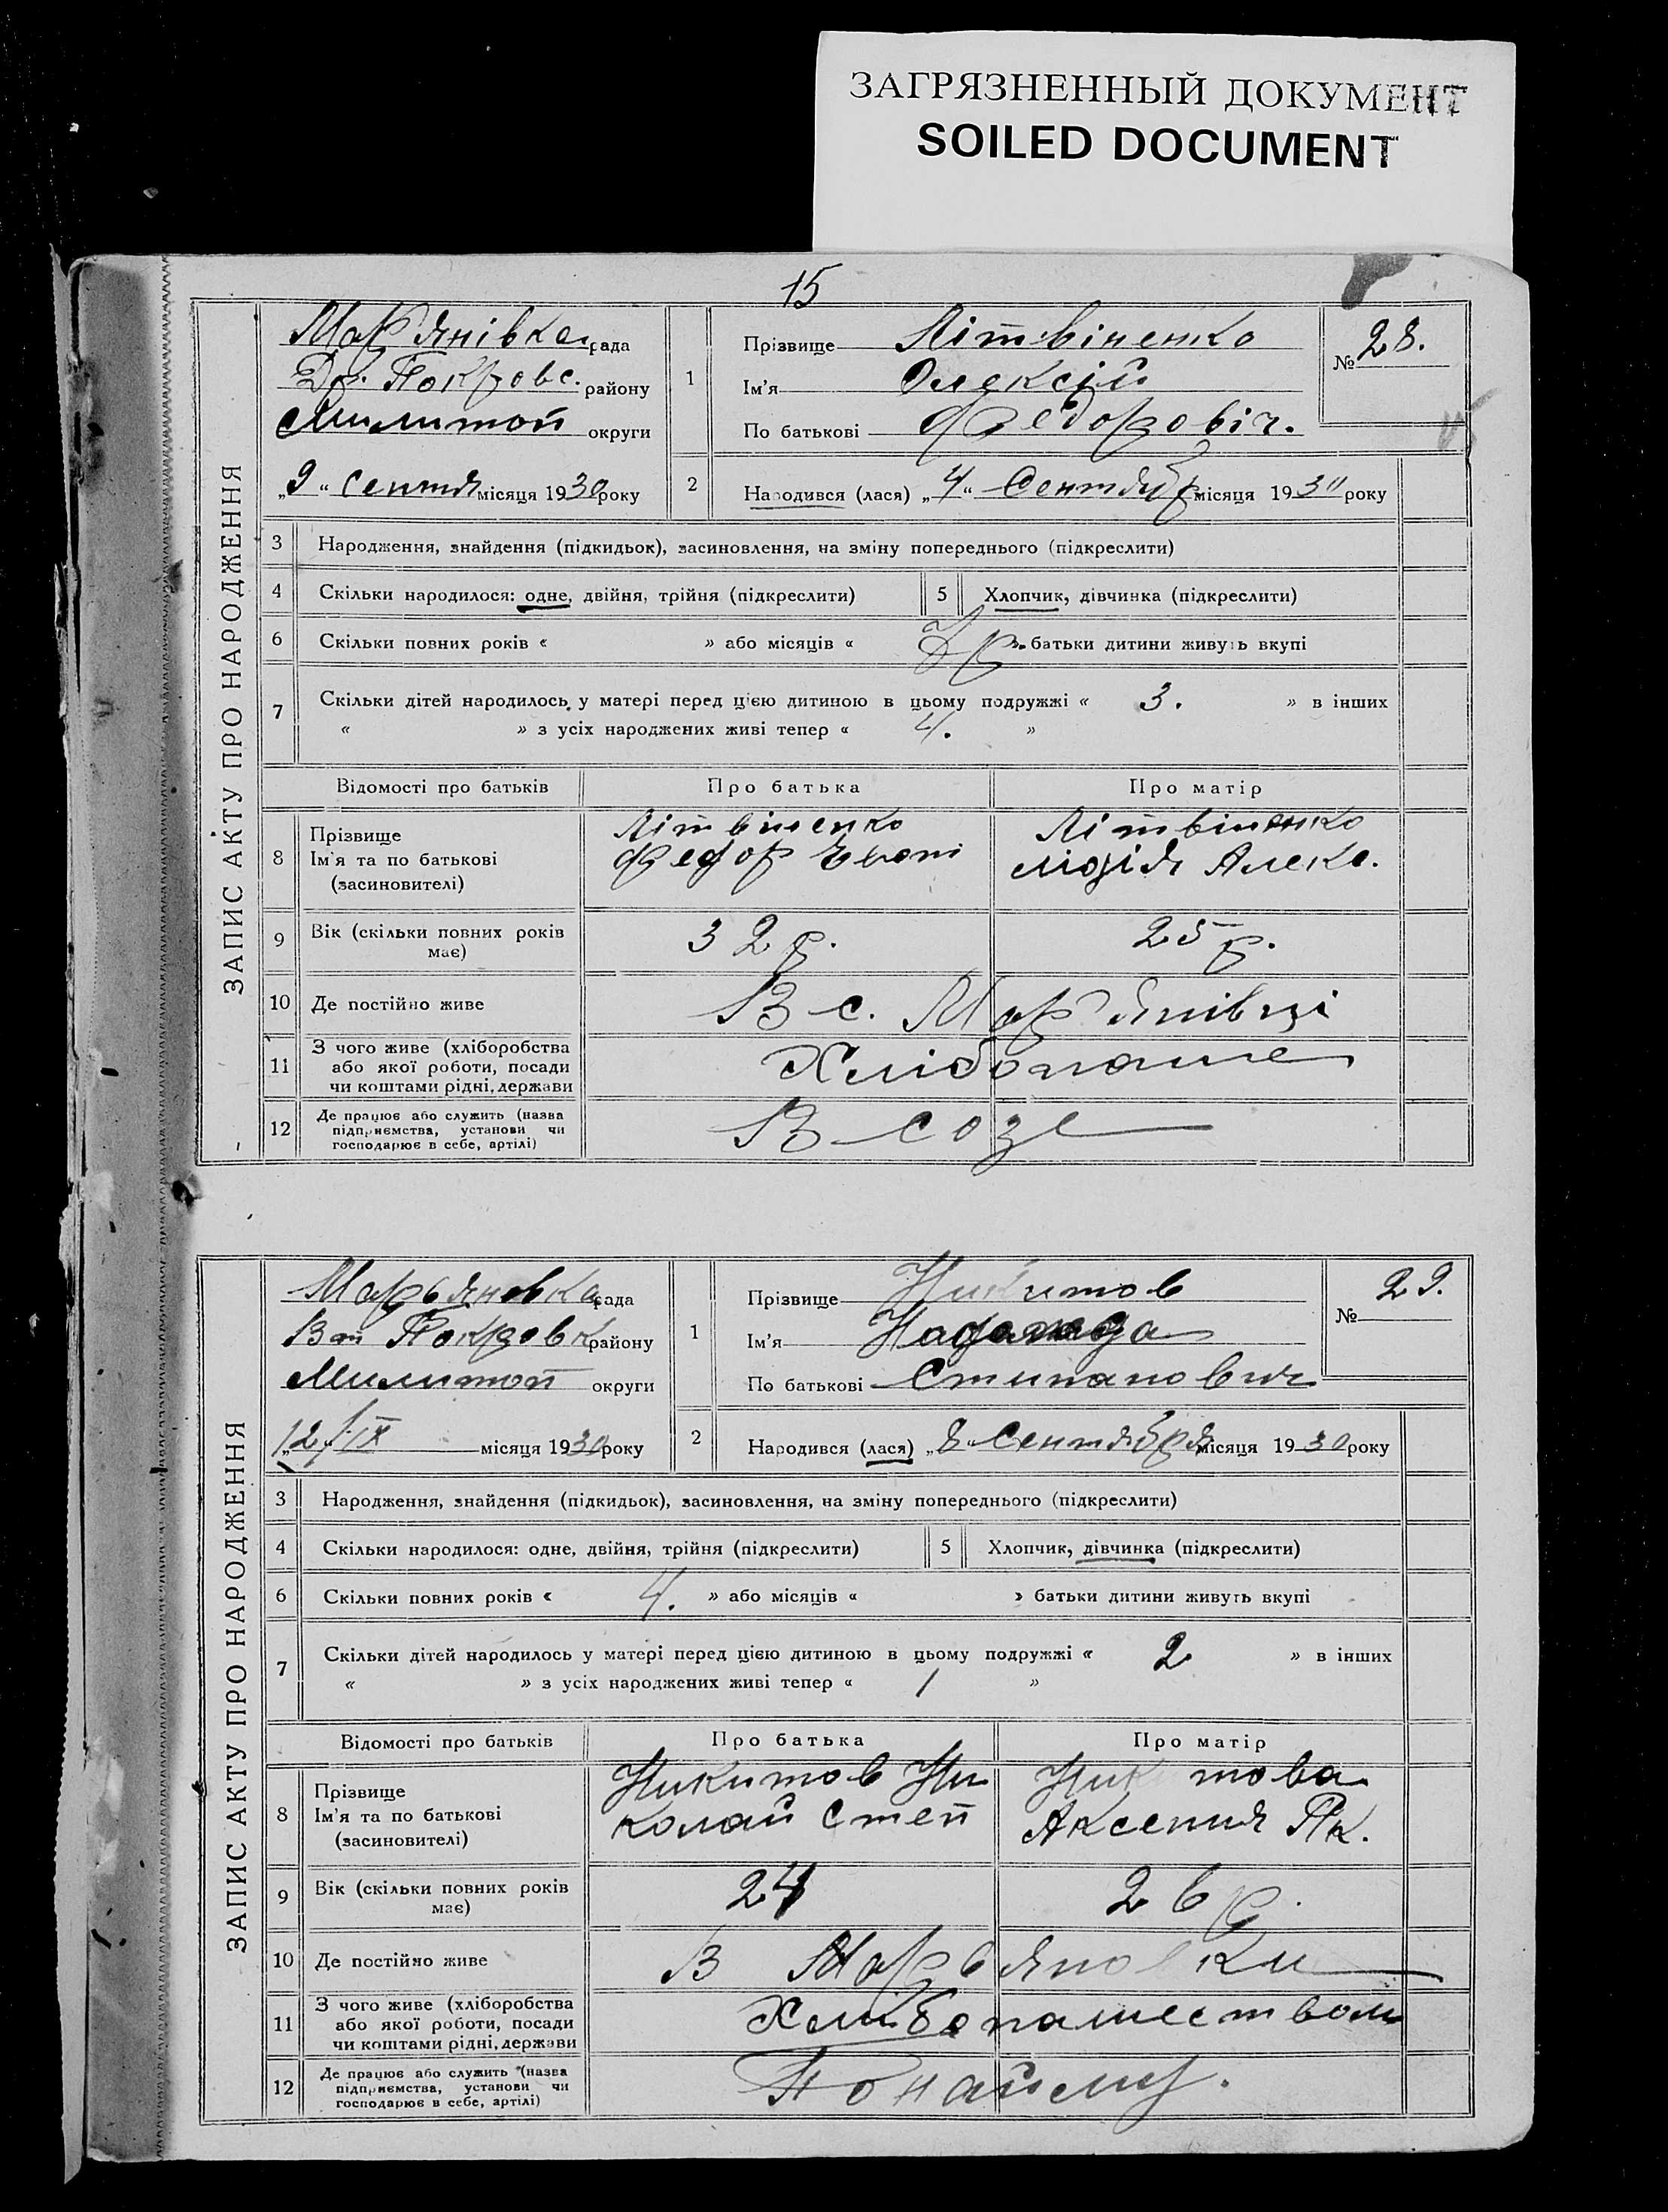 ЗАГРЯЗНЕННЫЙ ДОКУМЕНТ
SOILED DOCUMENT
15
ЗАПИС АКТУ ПРО НАРОДЖЕННЯ
Мар'янівка рада
Покровс. району
Милитоп округи
„9“ Сентя місяця 1930 року
1
Прізвище Літвіненко
Ім'я Олексій
По батькові Федоровіч.
№ 28.
2
Народився (лася) „4“ Сентябр місяця 1930 року
3 Народження, знайдення (підкидьок), засиновлення, на зміну попереднього (підкреслити)
4 Скільки народилося: одне, двійня, трійня (підкреслити)
5 Хлопчик, дівчинка (підкреслити)
6 Скільки повних років « » або місяців « » батьки дитини живуть вкупі
7 Скільки дітей народилось у матері перед цією дитиною в цьому подружжі « 3. » в інших
« » з усіх народжених живі тепер « 4. »
Відомості про батьків Про батька Про матір
8 Прізвище
Ім'я та по батькові
(засиновителі)
Літвіненко
Федор
Літвіненко
Лідія Алекс.
9 Вік (скільки повних років
має)
32 р. 25 р.
10 Де постійно живе В с. Мар'янівці
11 З чого живе (хліборобства
або якої роботи, посади
чи коштами рідні, держави
Хлібопаше
12 Де працює або служить (назва
підприємства, установи чи
господарює в себе, артілі)
В созе
ЗАПИС АКТУ ПРО НАРОДЖЕННЯ
Марьяновка рада
Покровк району
Милитоп округи
12/IX місяця 1930 року
1
Прізвище Никитов
Ім'я
По батькові Стипанович
№ 29.
2
Народився (лася) „8“ Сентября місяця 1930 року
3 Народження, знайдення (підкидьок), засиновлення, на зміну попереднього (підкреслити)
4 Скільки народилося: одне, двійня, трійня (підкреслити)
5 Хлопчик, дівчинка (підкреслити)
6 Скільки повних років « 4. » або місяців « » батьки дитини живуть вкупі
7 Скільки дітей народилось у матері перед цією дитиною в цьому подружжі « 2 » в інших
« » з усіх народжених живі тепер « 1 »
Відомості про батьків Про батька Про матір
8 Прізвище
Ім'я та по батькові
(засиновителі)
Никитов Ни
колай Степ
Никитова
Аксения Пк.
9 Вік (скільки повних років
має)
24 26 р.
10 Де постійно живе В Марьяновки
11 З чого живе (хліборобства
або якої роботи, посади
чи коштами рідні, держави
Хлибопашеством
12 Де працює або служить (назва
підприємства, установи чи
господарює в себе, артілі)
По найму.